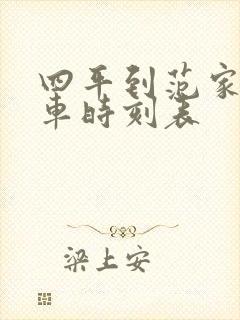 四平到范家
車時刻表
梁上安